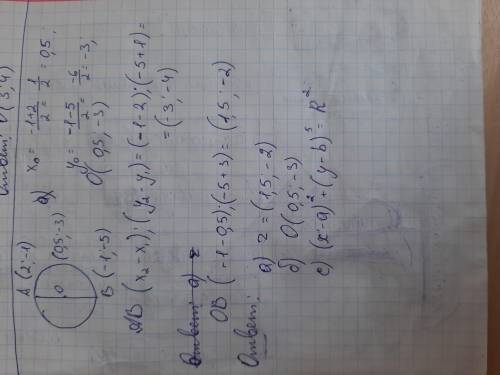 Ответ: D(3; 4)
A (2; -1)
O (0,5; -3)
B (-1; -5)
a) x₀ = (-1+2)/2 = 1/2 = 0,5;
y₀ = (-1-5)/2 = -6/2 = -3;
O(0,5; -3)
AB (x₂ - x₁); (y₂ - y₁) = (-1-2); (-5+1) =
= (3; -4)
Ответ: a) r
OB (-1-0,5); (-5+3) = (1,5; -2)
Ответ:
a) r = (1,5; -2)
б) O(0,5; -3)
c) (x-a)² + (y-b)⁵ = R²